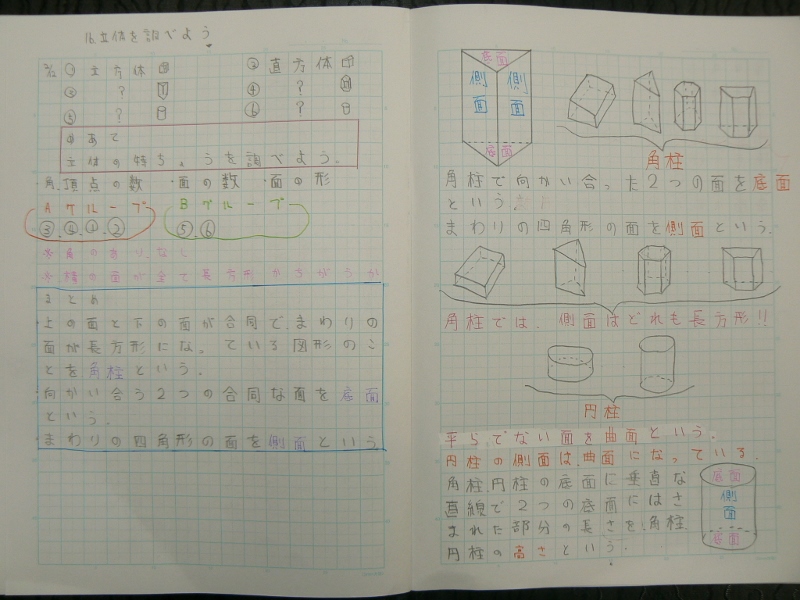 16.立体を調べよう
2/12 ① 立方体 ② 直方体
③ ? ④ ?
⑤ ? ⑥ ?
めあて
立体の特ちょうを調べよう.
・角,頂点の数 ・面の数 ・面の形
Aグループ Bグループ
③ ④ ① ② ⑤ ⑥
※角のありなし
※横の面が全て長方形かちがうか
まとめ
上の面と下の面が合同で,まわりの
面が長方形になっている図形のこ
とを角柱という.
向かい合う2つの合同な面を底面
という.
まわりの四角形の面を側面という
底面
側面 側面
底面
角柱
角柱で向かい合った2つの面を底面
という.
まわりの四角形の面を側面という.
角柱では,側面はどれも長方形!!
円柱
平らでない面を曲面という.
円柱の側面は,曲面になっている.
角柱,円柱の底面に垂直な
直線で2つの底面にはさ
まれた部分の長さを,角柱
円柱の高さという.
底面
側面
底面